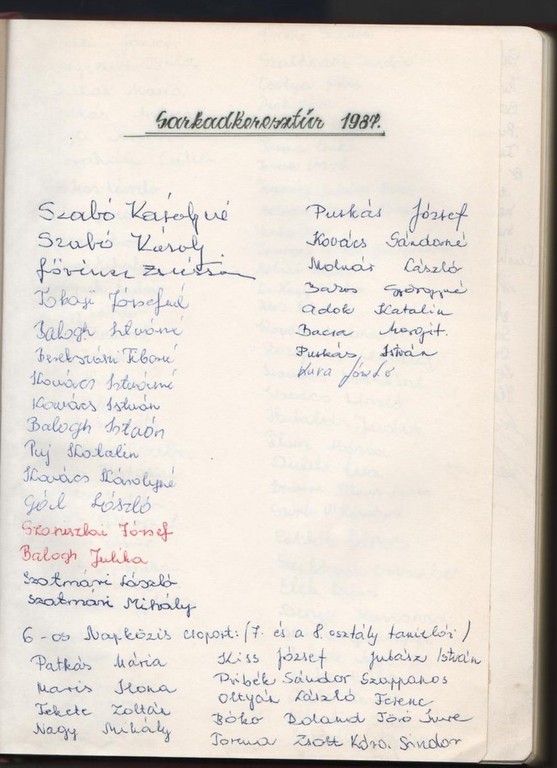 Sarkadkeresztúr 1987.
Szabó Károlyné
Szabó Károly
Tokaji Józsefné
Balogh Istvánné
Tiborné
Kovács Istvánné
Kovács István
Balogh István
Puj Katalin
Kovács Károlyné
Gál László
Szaniszlai József
Balogh Julika
Szatmári László
Szatmári Mihály
Puskás József
Kovács Sándorné
Molnár László
Baros Györgyné
Adok Katalin
Bacsa Margit.
Puskás István
Kura
6-os Napközis csoport: (7. és a 8 osztály tanulói)
Patkás Mária
Maris Ilona
Fekete Zoltán
Nagy Mihály
Kiss József Juhász István
Pribék Sándor Szappanos
Ottyán László Ferenc
Bókó Roland Joó Imre
Torma Zsolt Sándor